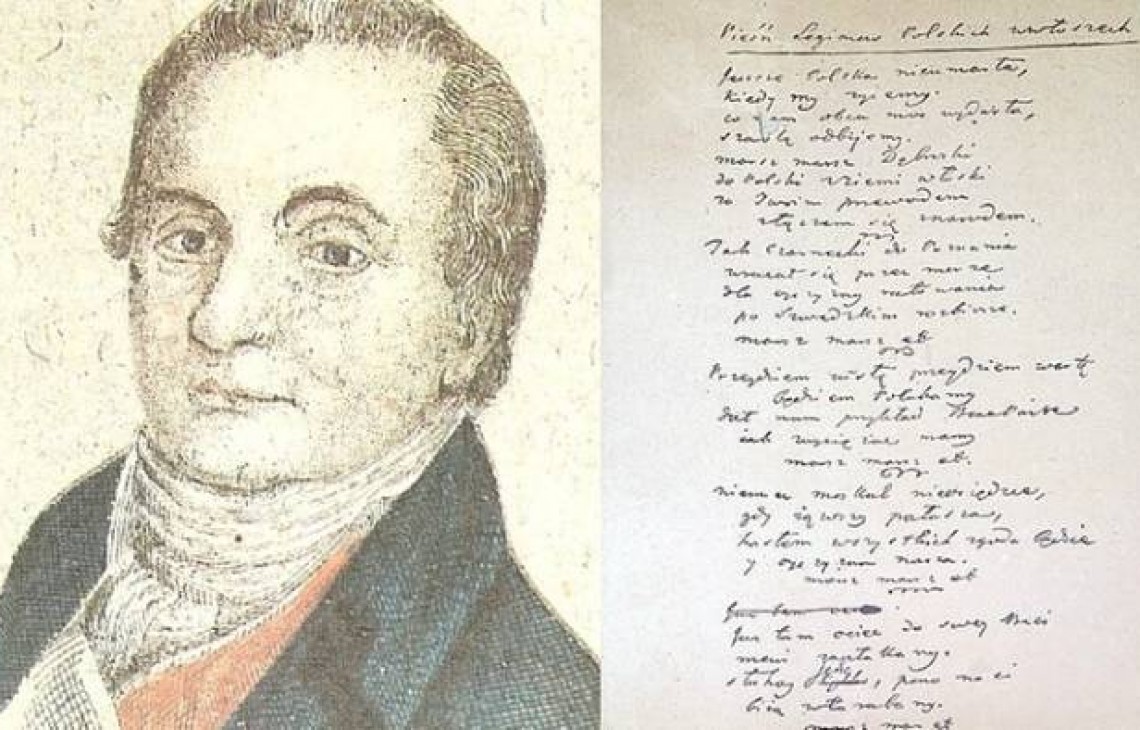 Pieśń Legionów Polskich we włoszech
Jeszcze Polska nie umarła,
kiedy my żyiemy.
co nam obca moc wydarła,
szablą odbijemy.
marsz marsz Dąbrowski
do Polski z ziemi włoski
za Twoim przewodem
złączem się z narodem.
Jak Czarnecki do Poznania
wracał się przez morze
dla oyczyzny ratowania
po szwedzkim rozbiorze.
marsz marsz et
Przejdziem wisłę przejdziem wartę
będziem Polakamy
dał nam przykład Bonaparte
jak zwyciężać mamy
marsz marsz et.
niemiec moskal nieosiędzie,
gdy iąwszy pałasza,
hasłem wszystkich zgoda będzie
y oyczyzna nasza.
marsz marsz et
Już tam
Już tam ociec do swey Basi
mówi zapłakany.
słuchay, pono nasi
biią w tarabany.
marsz mar et